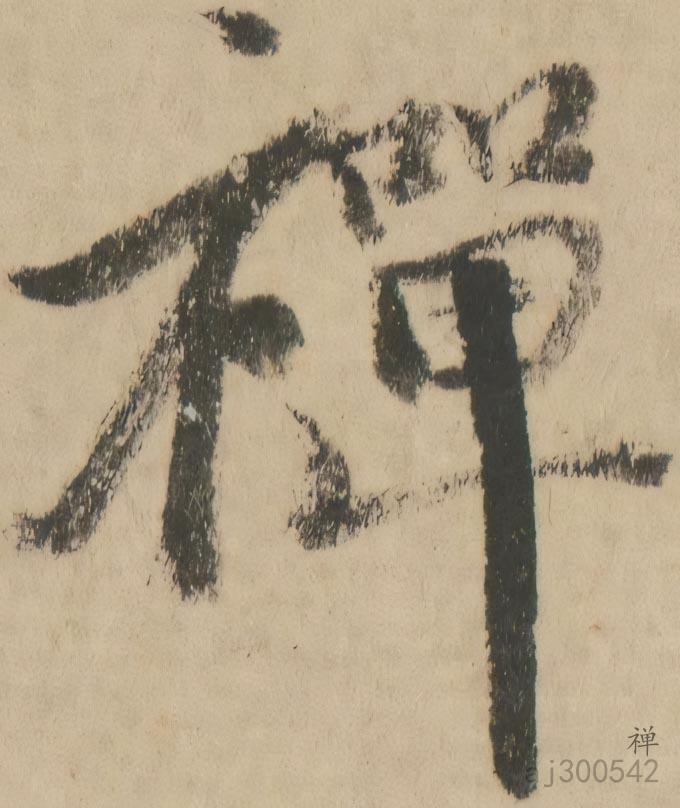 禪
禅
aj300542